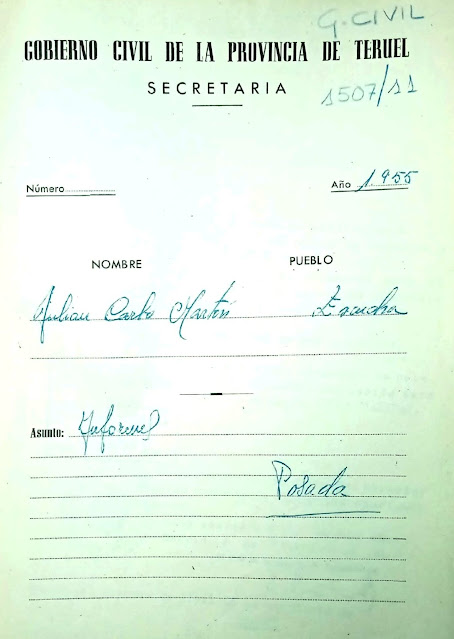 G. CIVIL
GOBIERNO CIVIL DE LA PROVINCIA DE TERUEL
SECRETARIA
1507/11
Número
Año 1.955
NOMBRE PUEBLO
Julian Carbo Martin Escucha
Asunto: Informes
Posada